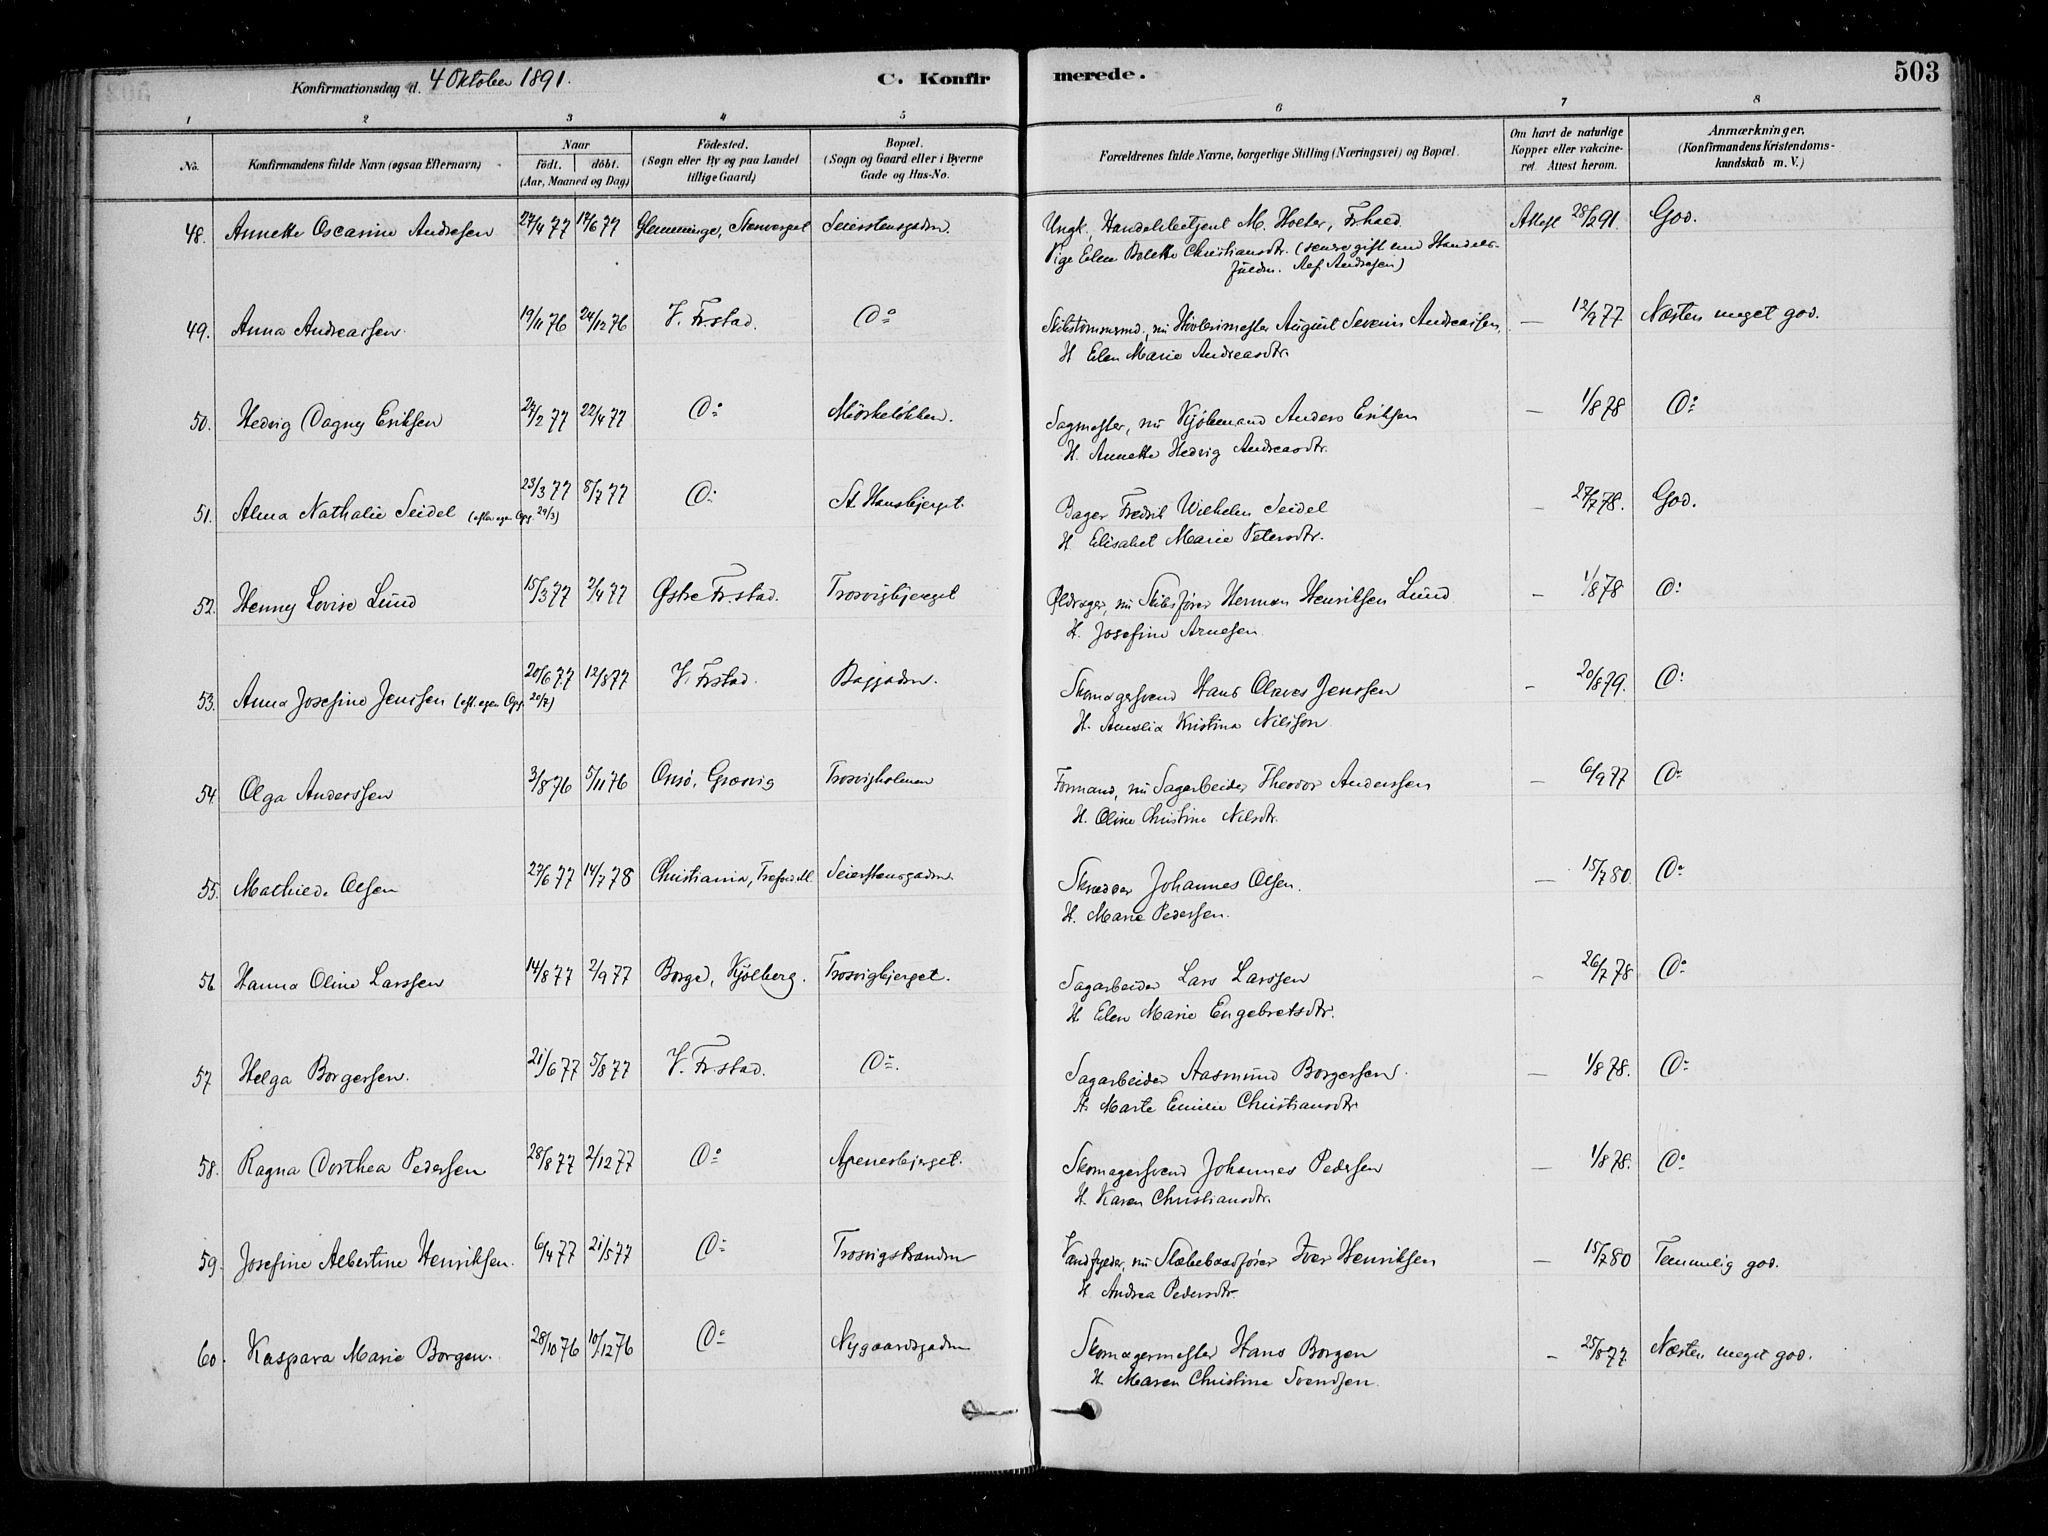 Konfirmationsdag d. 4 Oktober 1891. C. Konfirmerede. 503
1 2 3 4 5 6 7 8
No. Konfirmandens fulde Navn (ogsaa Efternavn) Naar födt. döbt. (Aar, Maaned og Dag) Födested. (Sogn eller By og paa Landet tillige Gaard) Bopæl. (Sogn og Gaard eller i Byerne Gade og Hus-No. Forældrenes fulde Navne, borgerlige Stilling (Næringsvei) og Bopæl. Om havt de naturlige Kopper eller vakcineret. Attest herom. Anmærkninger. (Konfirmandens Kristendomskundskab m. V.)
48. Annette Oscarine Andresen 27/4 77 17/6 77 Glemminge, Seierstensgaden. Ungk., Handelsbetjent M. Holter, Fr.hald. Attest 28/2 91. God.
Pige Elen Bolette Christiansdtr. (senere gift med Handels-
fuldm. Andresen)
49. Anna Andreassen 19/11 76 24/12 76 V. Fr.stad. Do Skibstømmermd., nu Høvlerimester August Severin Andreassen, — 12/2 77 Næsten meget god.
H. Elen Marie Andreasdtr.
50. Hedvig Dagny Eriksen 27/2 77 22/4 77 Do Mørkeløkken. Sagmester, nu Kjøbmand Anders Eriksen — 1/8 78 Do
H. Annette Hedvig Andreasdtr.
51. Alma Nathalie Seidel (efter egen Opg. 29/3) 23/3 77 8/7 77 Do St. Hansbjerget. Bager Fredrik Wilhelm Seidel - 27/7 78. God.
H. Elisabet Marie Petersdtr.
52. Henny Lovise Lund 15/3 77 2/4 77 Østre Fr.stad. Trosvigbjerget Øldrager, nu Skibsfører Herman Henriksen Lund - 1/8 78 Do
H. Josefine Arnesen.
53. Anna Josefine Jenssen (eft. egen Opg. 20/7) 20/6 77 12/8 77 V. Fr.stad. Baggaden. Skomagersvend Hans Olaves Jenssen - 20/8 79. Do
H. Amalia Kristina Nilsson.
54 Olga Anderssen 3/8 76 5/11 76 Onsø, Græsvig Trosvigholmen Formand, nu Sagarbeider Theodor Anderssen — 6/9 77 Do
H. Oline Christine Nilsdtr.
55. Mathilde Olsen 27/6 77 14/7 78 Christiania, Seierstensgaden. Skrædder Johannes Olsen. — 15/7 80. Do
H. Marie Pedersen.
56 Hanna Oline Larssen 14/8 77 2/9 77 Borge, Kjølberg. Trosvigbjerget. Sagarbeider Lars Larssen - 26/7 78 Do
H. Elen Marie Engebretsdtr.
57 Helga Borgersen. 21/6 77 5/8 77 V. Fr.stad. Do. Sagarbeider Aasmund Borgersen. — 1/8 78. Do
H. Marte Emilie Christiansdtr.
58. Ragna Dorthea Pedersen 28/8 77 2/12 77 Do Apenesbjerget. Skomagersvend Johannes Pedersen — 1/8 78. Do
H. Karen Christiansdtr.
59. Josefine Albertine Henriksen. 6/4 77 21/5 77 Do Trosvigstranden nu Slæbebaadfører Iver Henriksen — 15/7 80 Temmelig god.
H. Andrea Pedersdtr.
60. Kaspara Marie Borgen. 28/10 76 10/12 76 Do Nygaardsgaden Skomagermester Hans Borgen - 25/8 77. Næsten meget god.
H. Maren Christine Svendsen.